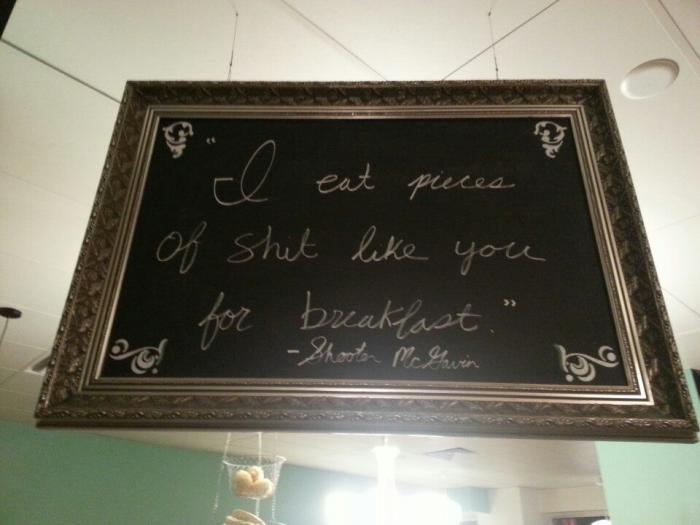 "I eat pieces
of shit like you
for breakfast."
- Shooter McGavin